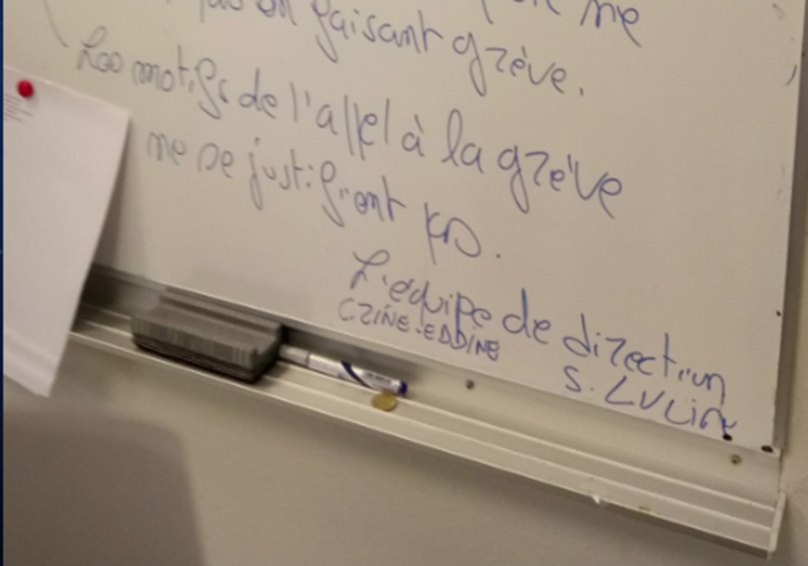 en faisant grève.
Les motifs de l'appel à la grève
ne se justifient pas.
L'équipe de direction
CZINE-EDDINE
S. LULin